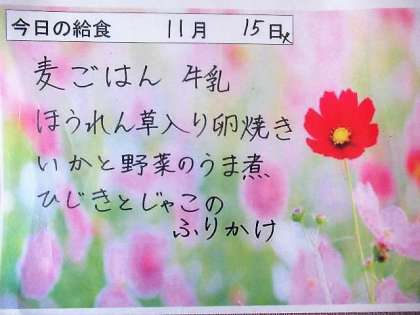 今日の給食 11月 15日
麦ごはん 牛乳
ほうれん草入り卵焼き
いかと野菜のうま煮
ひじきとじゃこの
ふりかけ